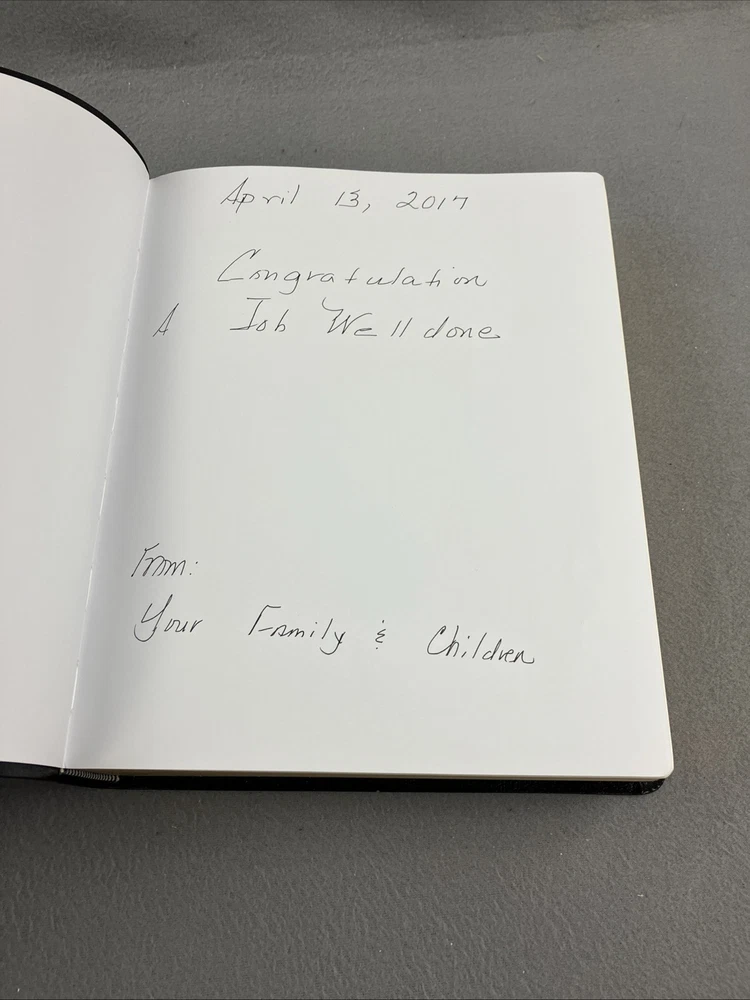 April 13, 2017
Congratulation
A Job Well done
From:
Your Family & Children